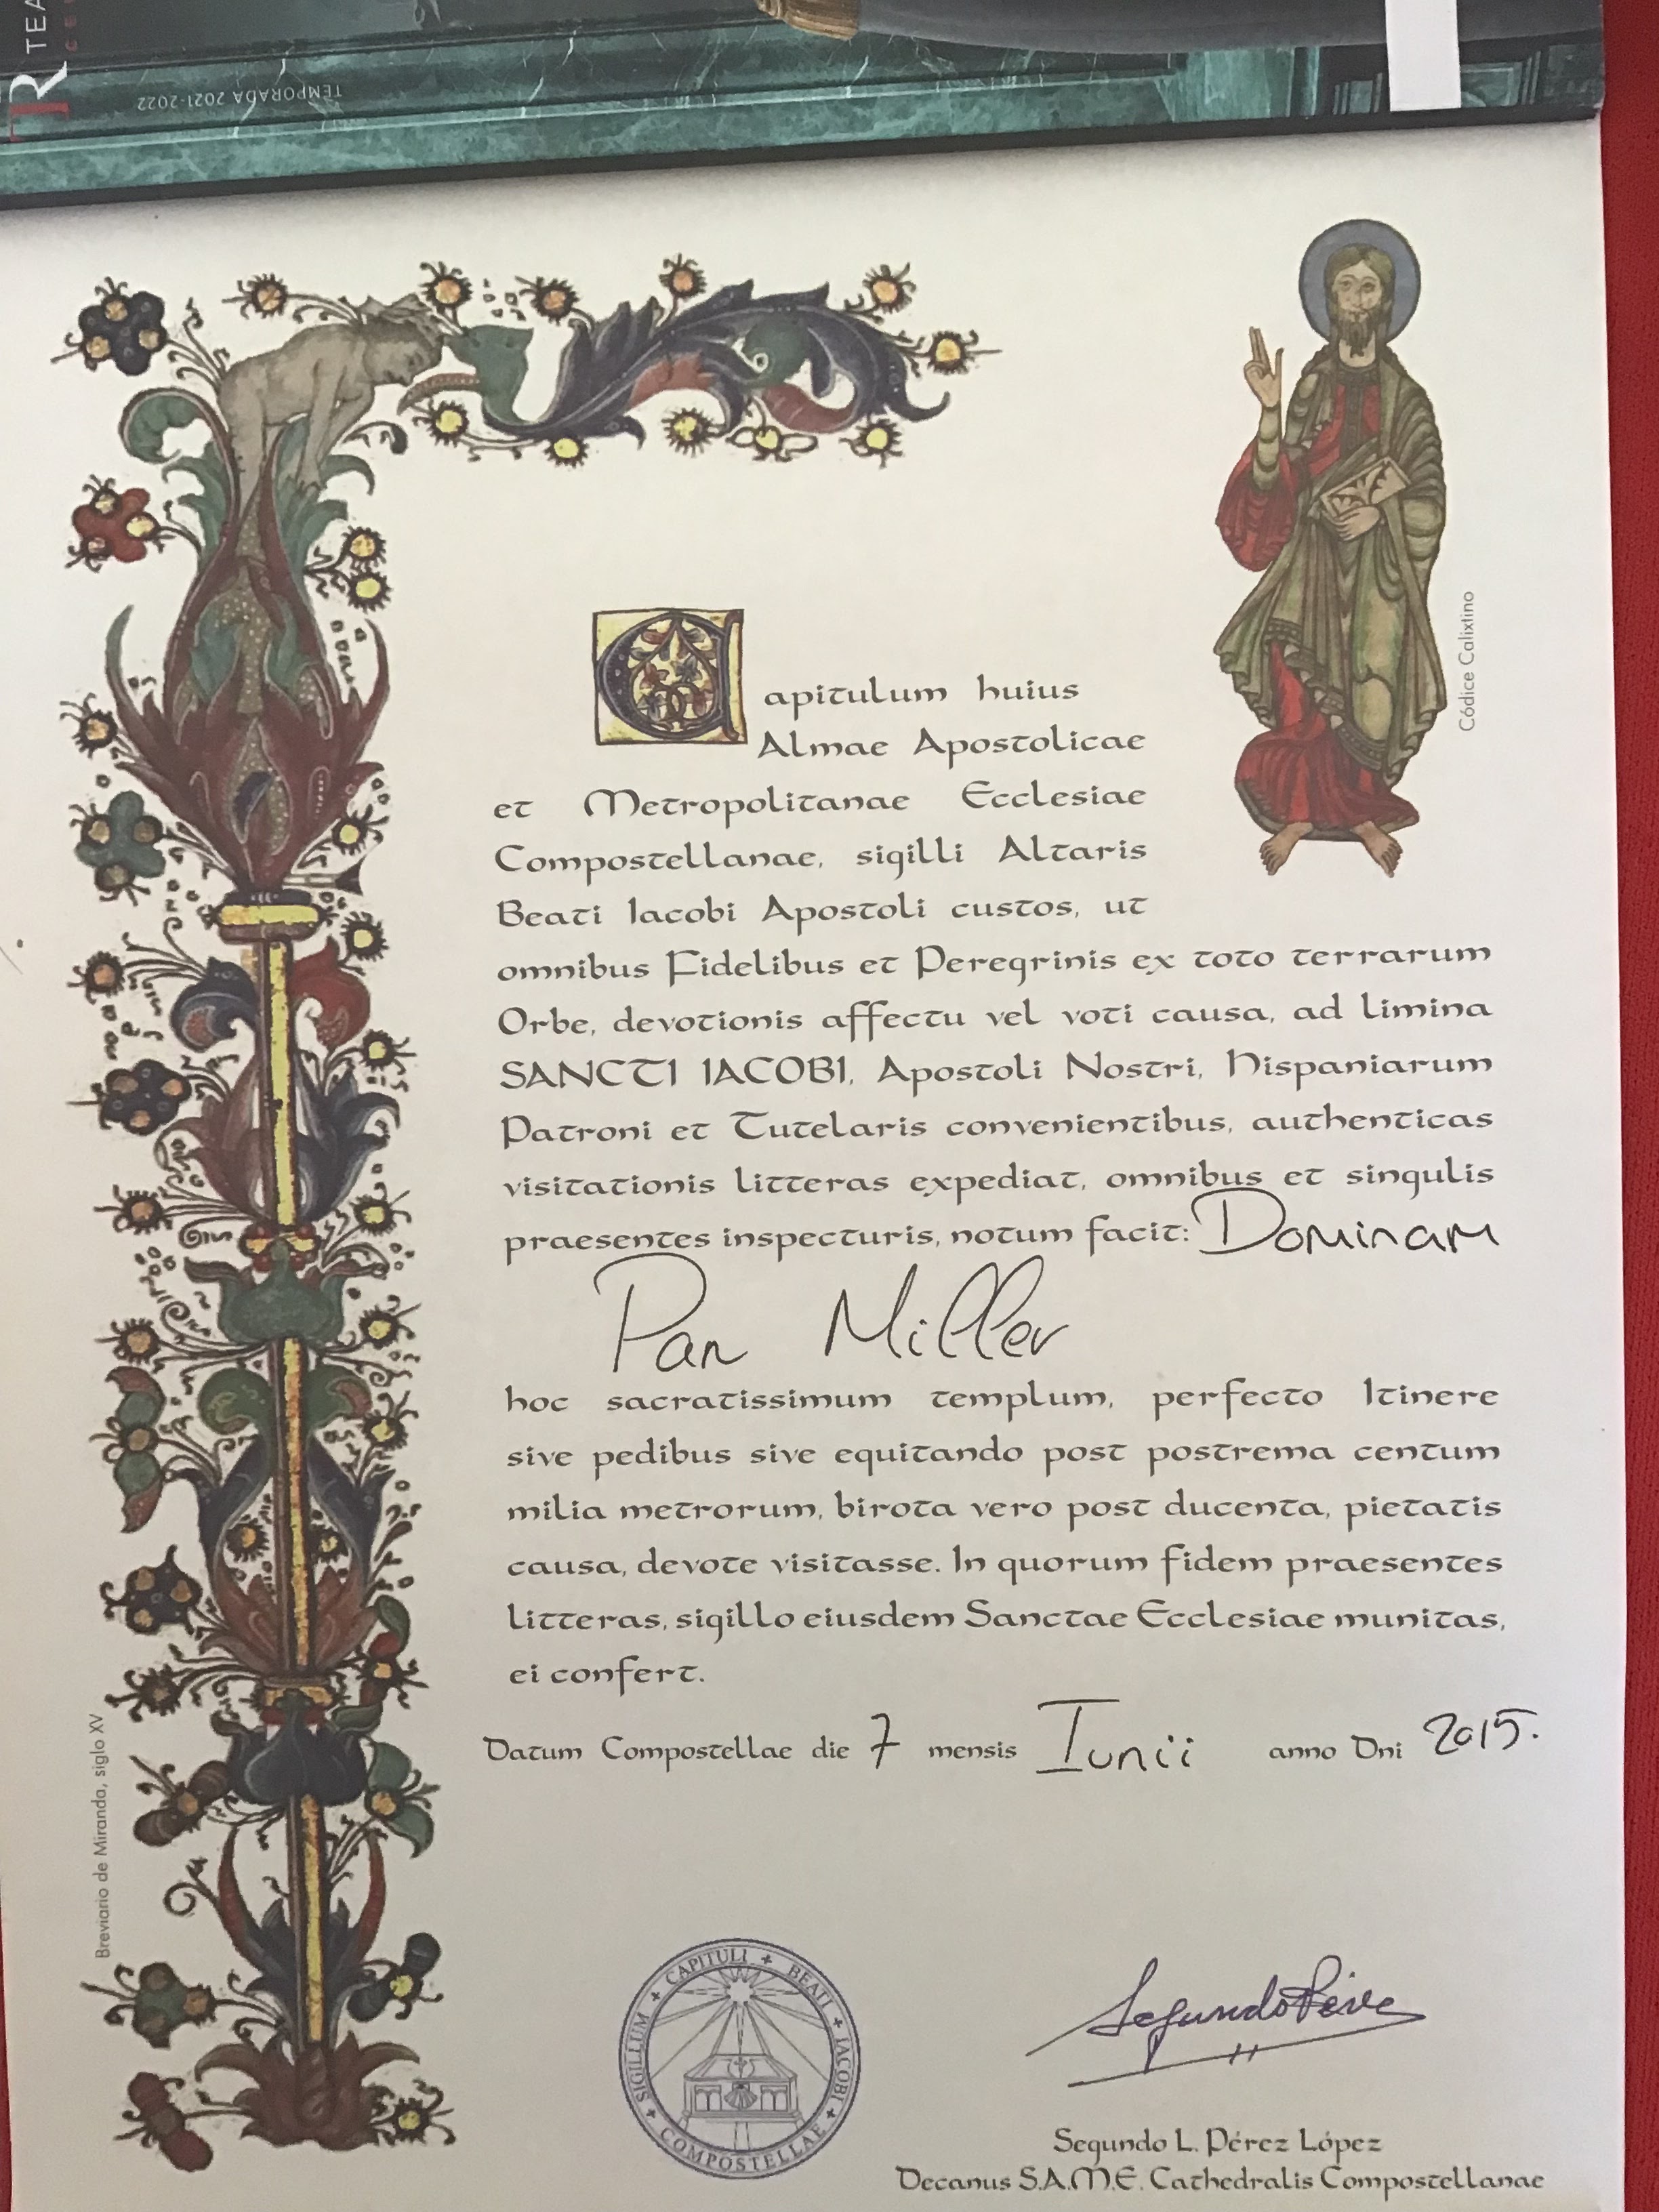 R TEA
TEMPORADA 2021-2022
Códice Calixtino
Capitulum huius
Almae Apostolicae
et Metropolitanae Ecclesiae
Compostellanae, sigilli Altaris
Beati Iacobi Apostoli custos, ut
omnibus Fidelibus et Peregrinis ex toto terrarum
Orbe, devotionis affectu vel voti causa, ad limina
SANCTI IACOBI, Apostoli Nostri, Hispaniarum
Patroni et Tutelaris convenientibus, authenticas
visitationis litteras expediat, omnibus et singulis
praesentes inspecturis, notum facit: Dominam
Pan Miller
hoc sacratissimum templum, perfecto Itinere
sive pedibus sive equitando post postrema centum
milia metrorum, birota vero post ducenta, pietatis
causa, devote visitasse. In quorum fidem praesentes
litteras, sigillo eiusdem Sanctae Ecclesiae munitas,
ei confert.
Datum Compostellae die 7 mensis Iunii anno Dni 2015.
Breviario de Miranda, siglo XV
SIGILLUM + CAPITULI + BEATI + IACOBI + COMPOSTELLAE +
Segundo Pérez
Segundo L. Pérez López
Decanus S.A.M.E. Cathedralis Compostellanae